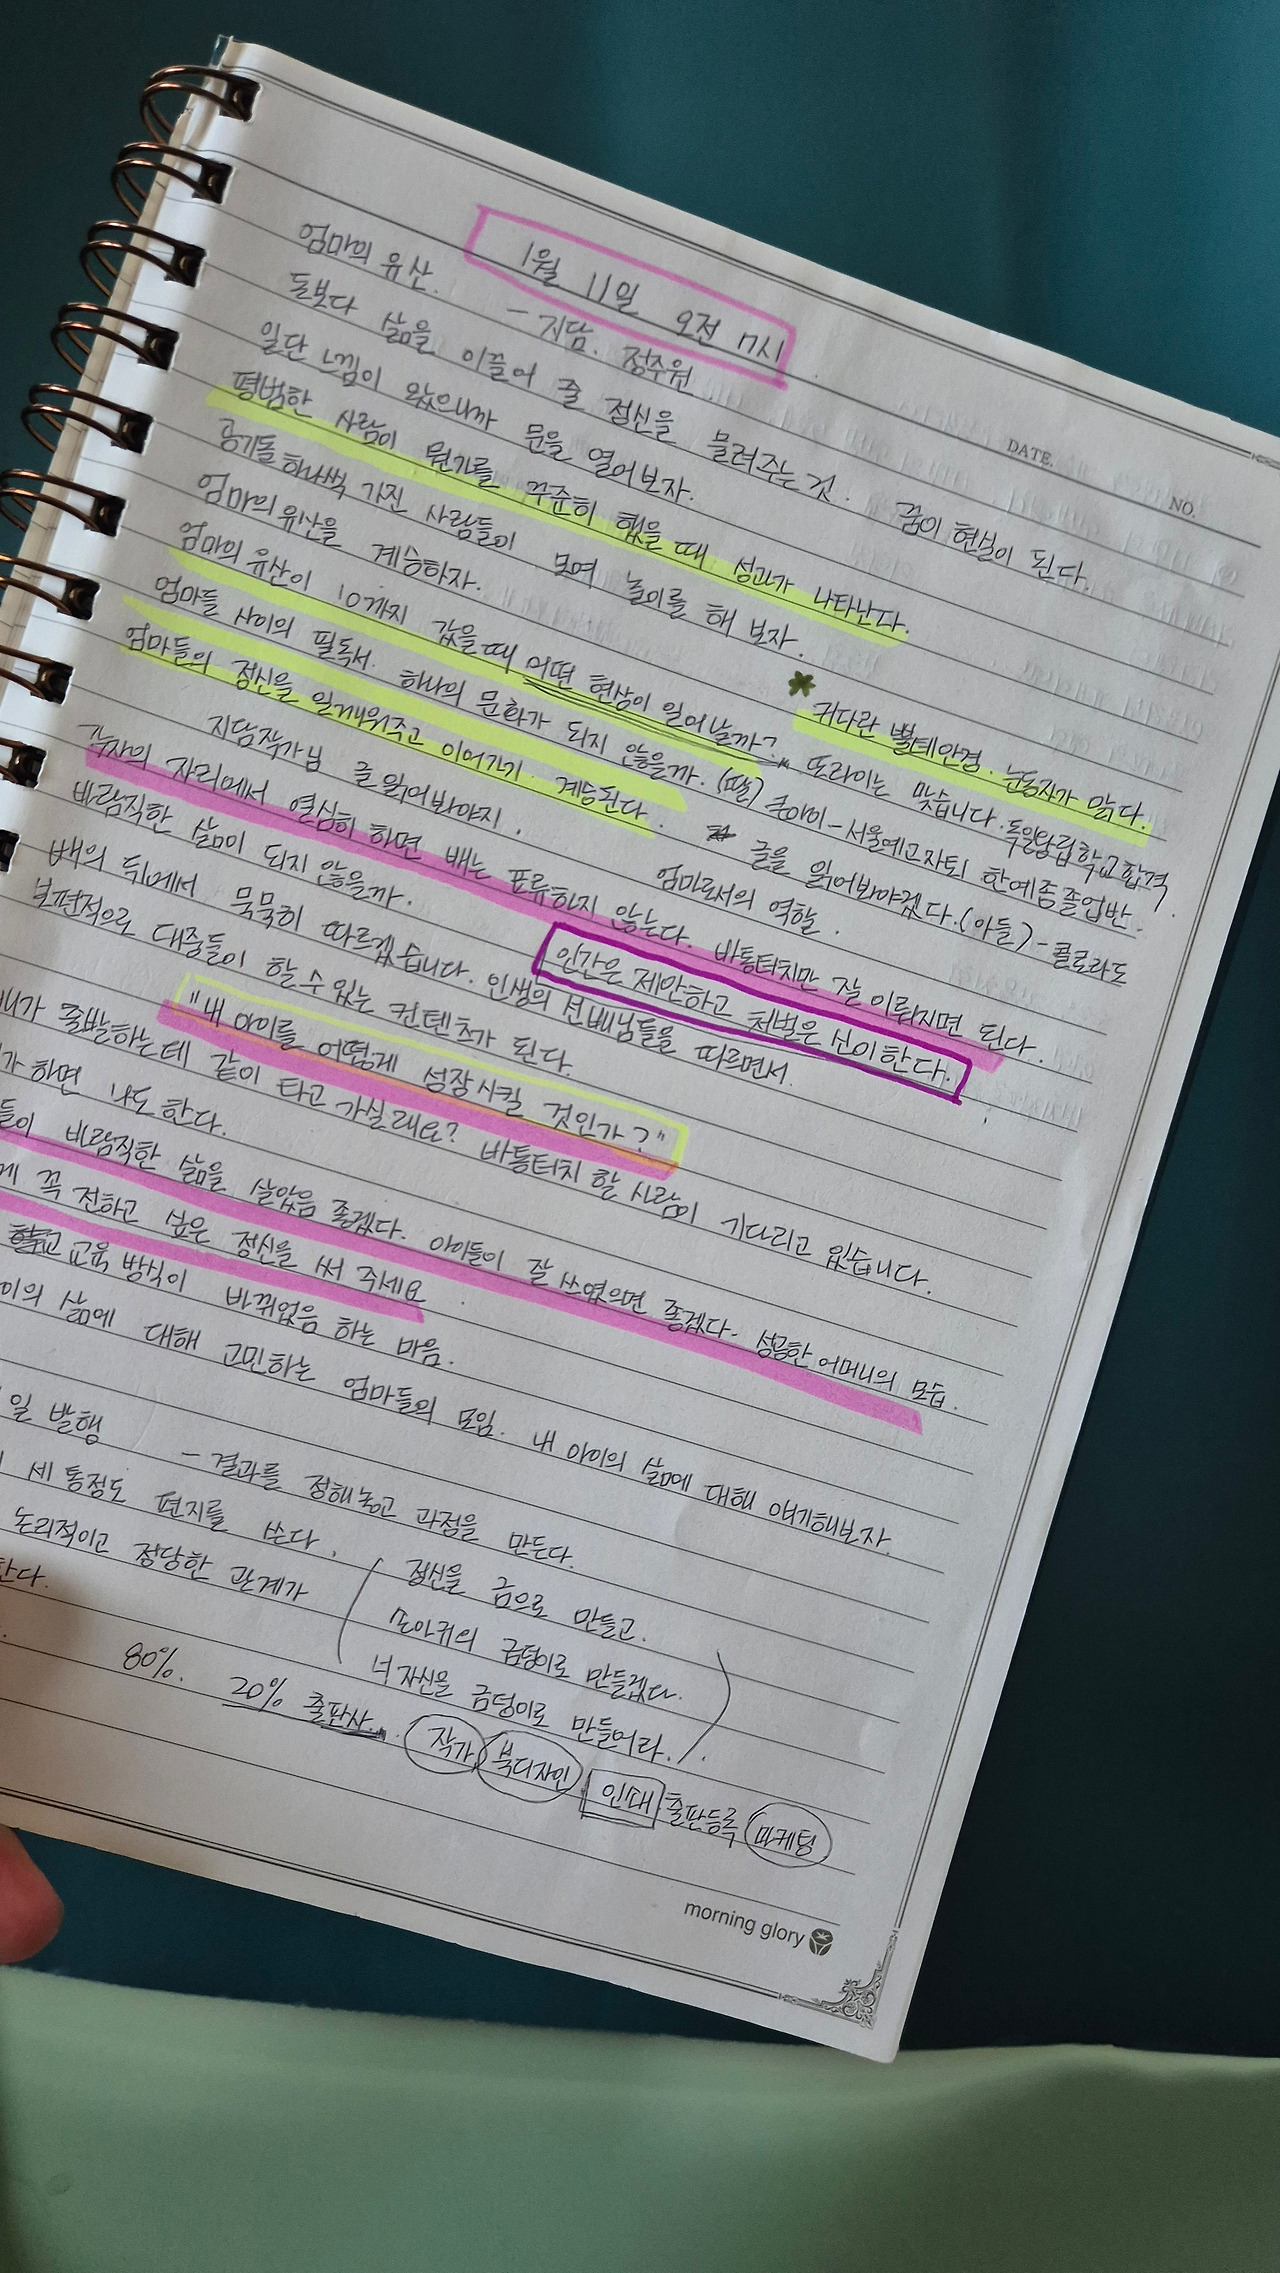 DATE.
NO.
1월 11일 오전 7시
엄마의 유산. - 지담. 정주원
돈보다 삶을 이끌어 줄 정신을 물려주는 것. 꿈이 현실이 된다.
일단 느낌이 왔으니까 문을 열어보자.
평범한 사람이 뭔가를 꾸준히 했을 때 성과가 나타난다.
공기돌 하나씩 가진 사람들이 모여 놀이를 해 보자.
엄마의 유산을 계승하자.
* 커다란 뿔테안경. 눈동자가 맑다.
엄마의 유산이 10까지 갔을때 어떤 현상이 일어날까? 또라이는 맞습니다.
엄마들 사이의 필독서. 하나의 문화가 되지 않을까. (딸) - 서울예고자퇴 한예종졸업반.
엄마들의 정신을 일깨워주고 이어가기. 계승된다. 글을 읽어봐야겠다. (아들) - 콜로라도
지담작가님 글 읽어봐야지. 엄마로서의 역할.
각자의 자리에서 열심히 하면 배는 표류하지 않는다. 바통터치만 잘 이뤄지면 된다.
바람직한 삶이 되지 않을까. 인간은 제안하고 처벌은 신이한다.
배의 뒤에서 묵묵히 따르겠습니다. 인생의 선배님들을 따르면서.
보편적으로 대중들이 할 수 있는 컨텐츠가 된다.
"내 아이를 어떻게 성장시킬 것인가?"
출발하는데 같이 타고 가실래요? 바통터치 할 사람이 기다리고 있습니다.
하면 나도 한다.
바람직한 삶을 살았음 좋겠다. 아이들이 잘 쓰였으면 좋겠다. 성공한 어머니의 모습.
꼭 전하고 싶은 정신을 써 주세요.
교육 방식이 바뀌었음 하는 마음.
삶에 대해 고민하는 엄마들의 모임. 내 아이의 삶에 대해 얘기해보자.
일 발행 - 결과를 정해놓고 과정을 만든다.
세 통정도 편지를 쓴다. 정신을 금으로 만들고.
논리적이고 정당한 관계가 금덩이로 만들겠다.
너 자신을 금덩이로 만들어라.
80%. 20% 출판사. 작가 북디자인 인쇄 출판등록 마케팅
morning glory